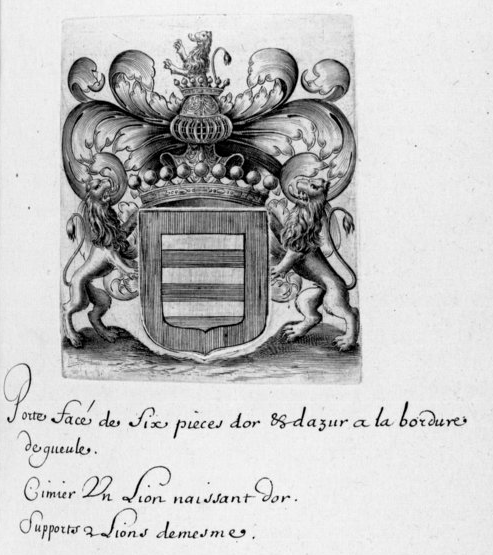 Porte facé de six pieces dor & dazur a la bordure
de gueule.
Cimier Un Lion naissant dor.
Supports 2 Lions demesme.